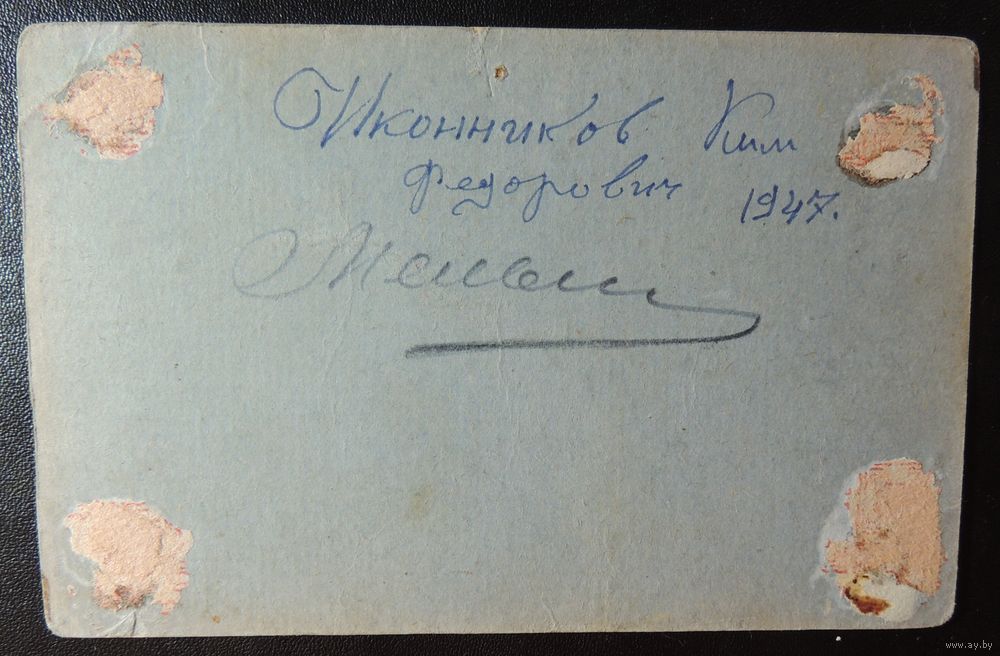 Иконников Ким
Федорович 1947.
www.ay.by